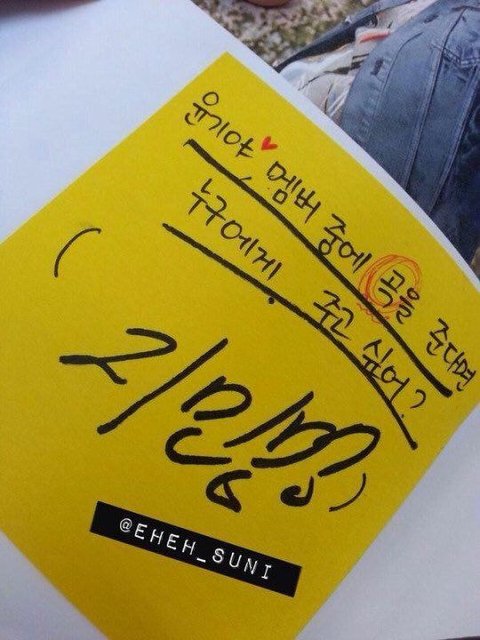 윤기야♥ 멤버 중에 곡을 준다면
누구에게 주고 싶어?
( 지민 )
@EHEH_SUNI